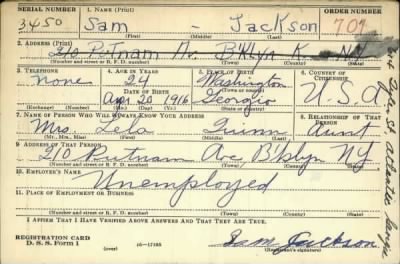 SERIAL NUMBER 1. NAME (Print) ORDER NUMBER
3450 Sam - Jackson 709
(First) (Middle) (Last)
2. ADDRESS (Print)
210 Putnam Av. B'klyn K NY
(Number and street or R. F. D. number) (Town) (County) (State)
3. TELEPHONE 4. AGE IN YEARS 5. PLACE OF BIRTH 6. COUNTRY OF CITIZENSHIP
None 24 Washington U.S.A
DATE OF BIRTH (Town or county)
Apr. 20 1916 Georgia
(Exchange) (Number) (Mo.) (Day) (Yr.) (State or country)
7. NAME OF PERSON WHO WILL ALWAYS KNOW YOUR ADDRESS 8. RELATIONSHIP OF THAT PERSON
Mrs. Lela Quinn Aunt
(Mr., Mrs., Miss) (First) (Middle) (Last)
9. ADDRESS OF THAT PERSON
210 Putnam Ave B'klyn NY
(Number and street or R. F. D. number) (Town) (County) (State)
10. EMPLOYER'S NAME
Unemployed
11. PLACE OF EMPLOYMENT OR BUSINESS
(Number and street or R. F. D. number) (Town) (County) (State)
I AFFIRM THAT I HAVE VERIFIED ABOVE ANSWERS AND THAT THEY ARE TRUE.
REGISTRATION CARD
D. S. S. Form 1 (over) 16-17105 Sam Jackson
(Registrant's signature)